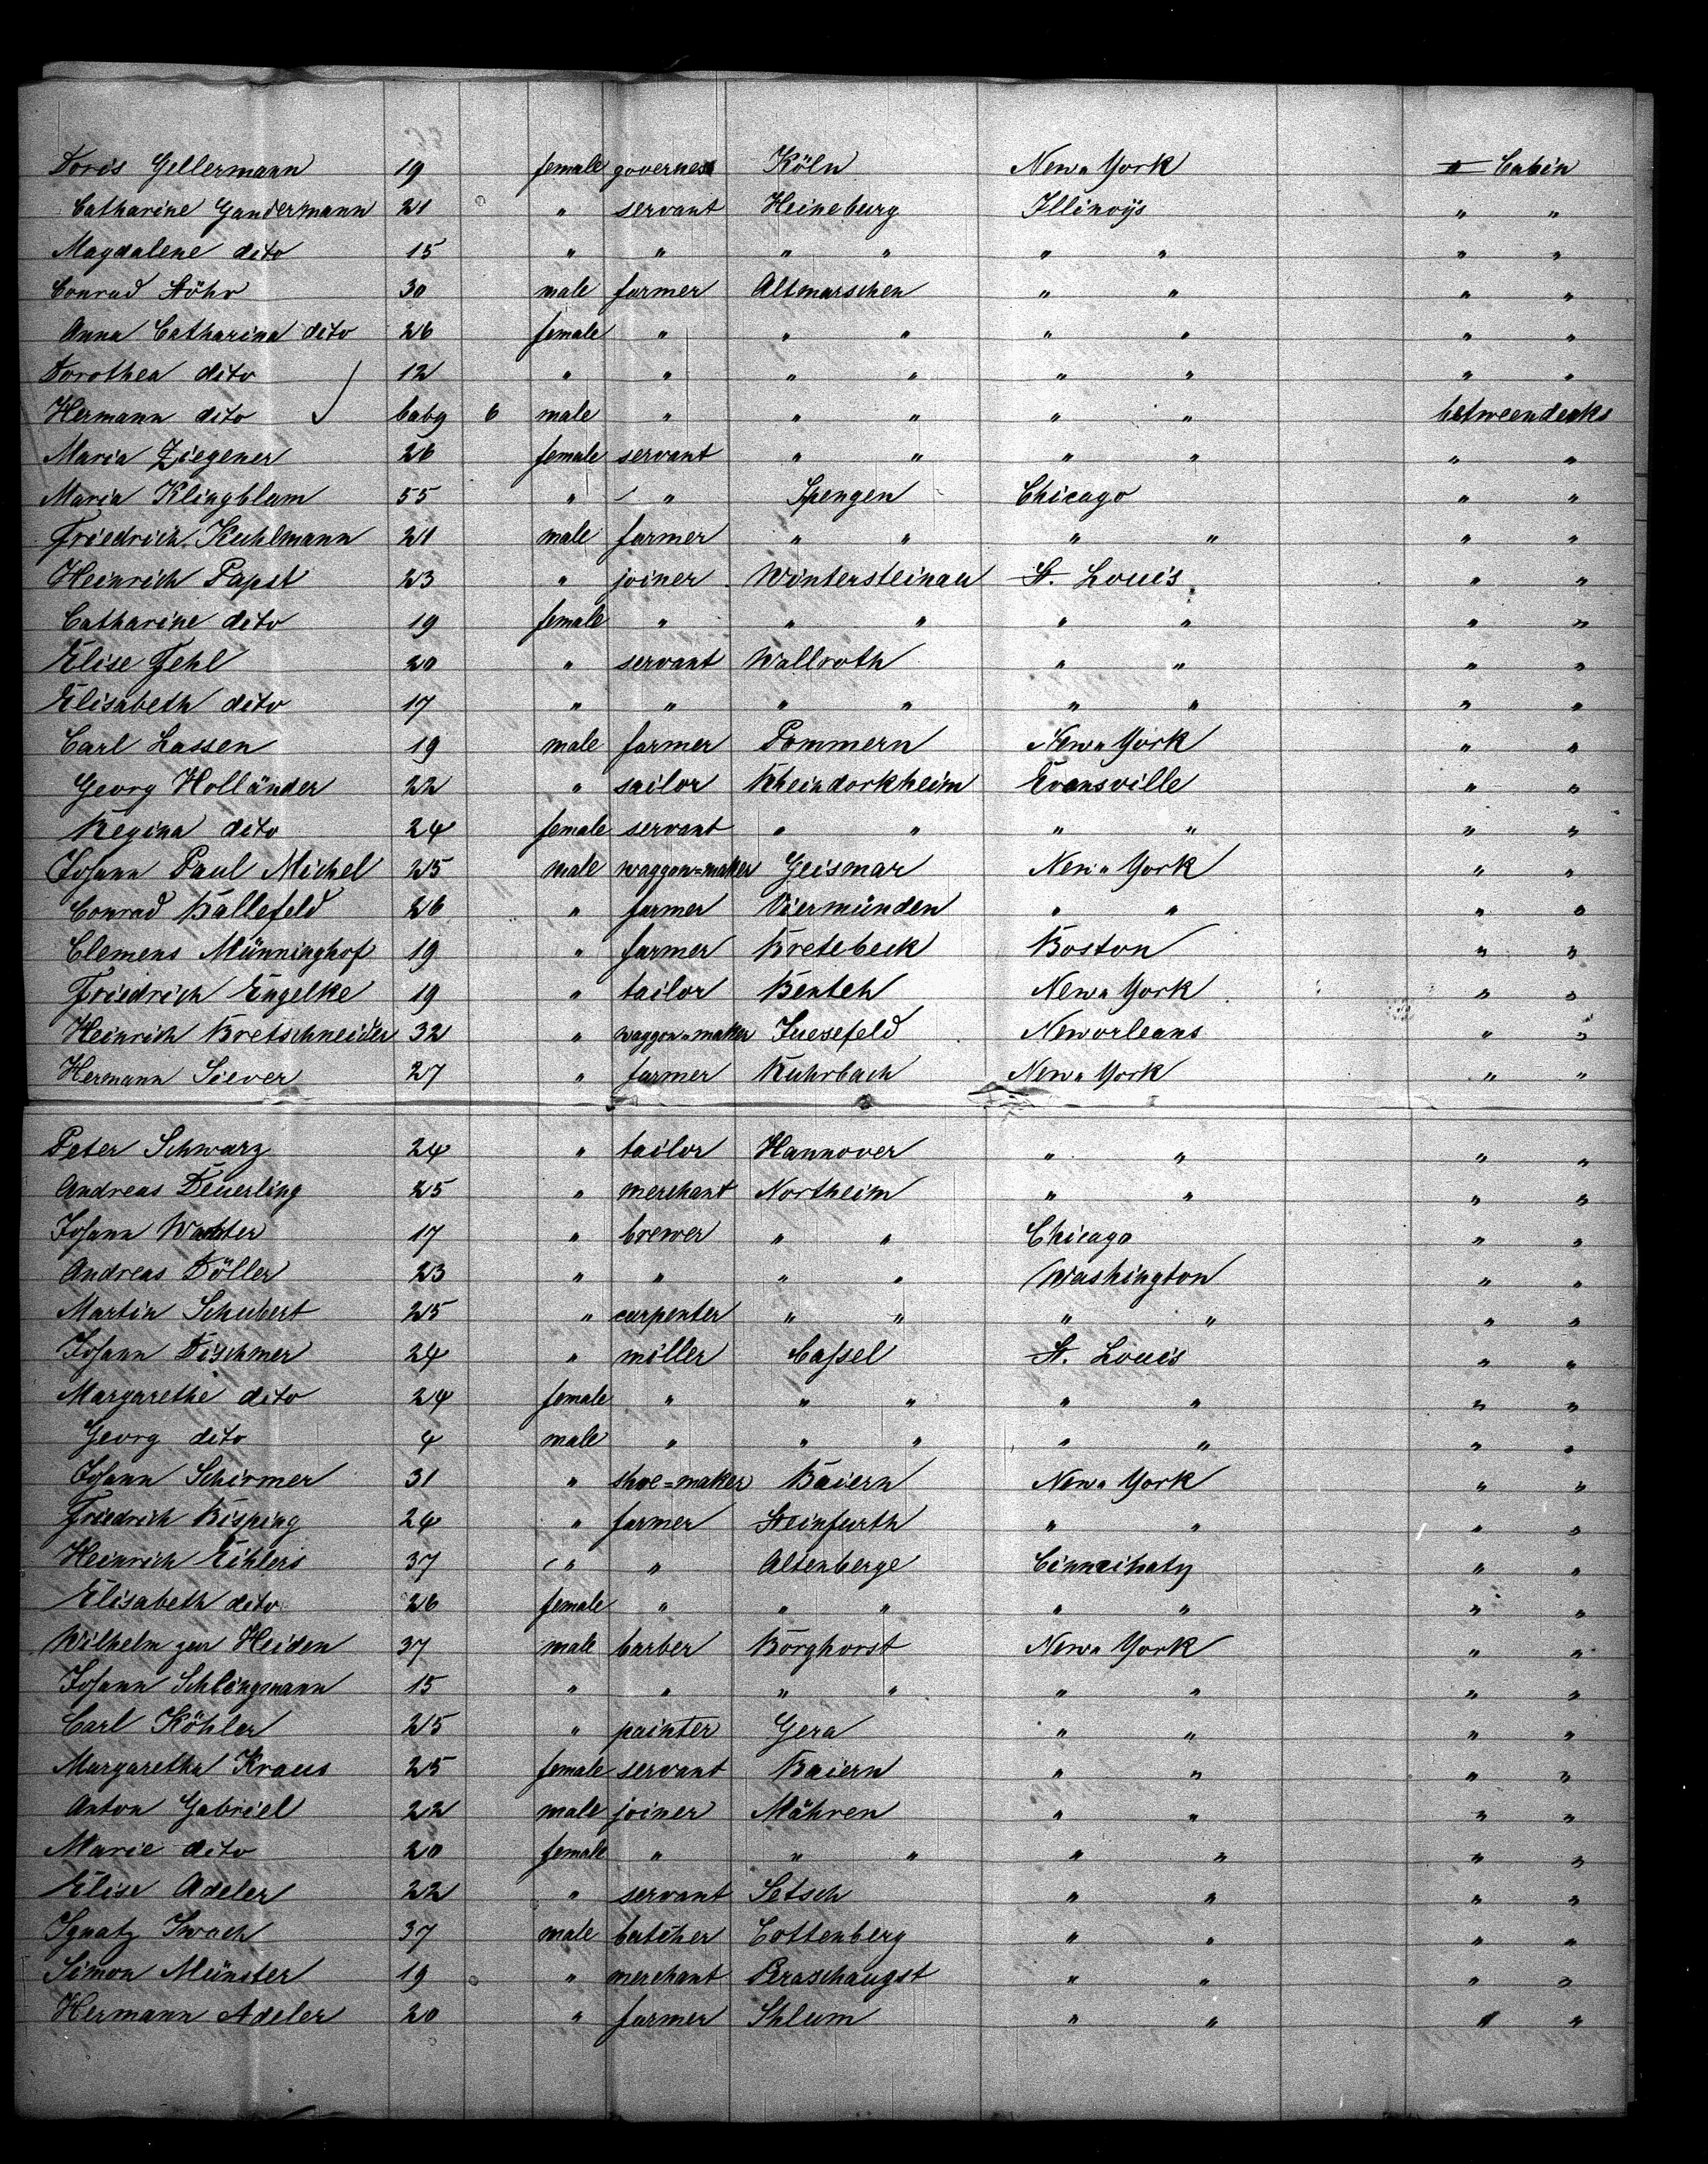 Doris Gellermann 19 female governess Köln New York " Cabin
Catharine Gandermann 21 " servant Heineburg Illinoys " "
Magdalene dito 15 " " " " " " " "
Conrad Stöhr 30 male farmer Altmarschen " " " "
Anna Catharina dito 26 female " " " " " " "
Dorothea dito 12 " " " " " " " "
Hermann dito baby 6 male " " " " " betweendecks
Maria Ziegener 26 female servant " " " " " "
Maria Klingblum 55 " " Spengen Chicago " "
Friedrich Kuhlmann 21 male farmer " " " " " "
Heinrich Papst 23 " joiner Wintersteinau St. Louis " "
Catharine dito 19 female " " " " " " "
Elise Fehl 20 " servant Wallroth " " " "
Elisabeth dito 17 " " " " " " " "
Carl Lassen 19 male farmer Pommern New York " "
Georg Holländer 22 " sailor Rheindorkheim Evansville " "
Regina dito 24 female servant " " " " " "
Johann Paul Michel 25 male waggon=maker Geismar New York " "
Conrad Ballefeld 26 " farmer Viermünden " " " "
Clemens Münninghof 19 " farmer Bretebeck Boston " "
Friedrich Engelke 19 " tailor Benteh New York " "
Heinrich Bretschneider 32 " waggon=maker Juesefeld Neworleans " "
Hermann Siever 27 " farmer Kuhrbach New York " "
Peter Schwarz 24 " tailor Hannover " " " "
Andreas Deuerling 25 " merchant Northeim " " " "
Johann 17 " brewer " " Chicago " "
Andreas Döller 23 " " " " Washington " "
Martin Schubert 25 " carpenter " " " " " "
Johann Dischmer 24 " miller Cassel St. Louis " "
Margarethe dito 24 female " " " " " " "
Georg dito 4 male " " " " " " "
Johann Schirmer 31 " shoe=maker Baiern New York " "
Friedrich Bisping 24 " farmer Steinfurth " " " "
Heinrich Eihlers 37 " " Altenberge Cinncinaty " "
Elisabeth dito 26 female " " " " " " "
Wilhelm zur Heiden 37 male barber Borghorst New York " "
Johann Schlingmann 15 " " " " " " " "
Carl Köhler 25 " painter Gera " " " "
Margaretha Kraus 25 female servant Baiern " " " "
Anton Gabriel 22 male joiner Mähren " " " "
Marie dito 20 female " " " " " " "
Elise Adeler 22 " servant Setsch " " " "
Ignatz Swach 37 male butcher Cottenberg " " " "
Simon Münster 19 " merchant Peraschaugst " " " "
Hermann Adeler 20 " farmer Shlum " " " "